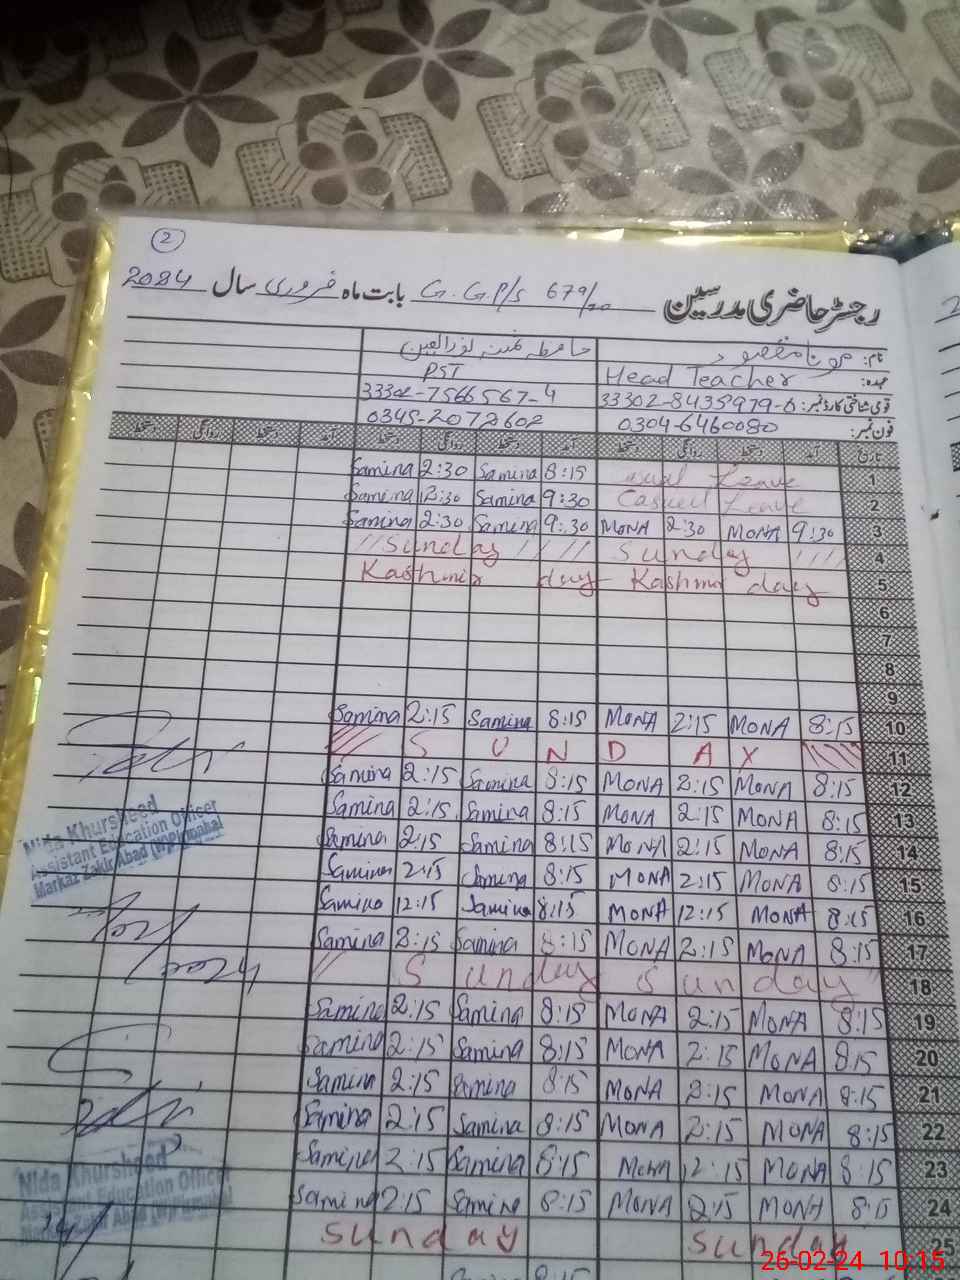 2
رجسٹر حاضری مدرسین G.G.P/S 679/20 بابت ماہ فروری سال 2084
نام: مونا مقصود
عہدہ: Head Teacher PST
قومی شناختی کارڈ نمبر: 33302-8435979-6 33302-7566567-4
فون نمبر: 0304-6460080 0345-2072602
تاریخ آمد دستخط روانگی دستخط آمد دستخط روانگی دستخط آمد دستخط روانگی دستخط
Samina 2:30 Samina 8:15 Leave 1
Samina 2:30 Samina 9:30 Casual Leave 2
Samina 2:30 Samina 9:30 MONA 2:30 MONA 9:30 3
Sunday Sunday 4
Kashmir day Kashmir day 5
6
7
8
9
Samina 2:15 Samina 8:15 MONA 2:15 MONA 8:15 10
S U N D A Y 11
Samina 2:15 Samina 8:15 MONA 2:15 MONA 8:15 12
Samina 2:15 Samina 8:15 MONA 2:15 MONA 8:15 13
Samina 2:15 Samina 8:15 MONA 2:15 MONA 8:15 14
Samina 2:15 Samina 8:15 MONA 2:15 MONA 8:15 15
Samina 12:15 Samina 8:15 MONA 12:15 MONA 8:15 16
Samina 2:15 Samina 8:15 MONA 2:15 MONA 8:15 17
Sunday Sunday 18
Samina 2:15 Samina 8:15 MONA 2:15 MONA 8:15 19
Samina 2:15 Samina 8:15 MONA 2:15 MONA 8:15 20
Samina 2:15 Samina 8:15 MONA 2:15 MONA 8:15 21
Samina 2:15 Samina 8:15 MONA 2:15 MONA 8:15 22
Samina 2:15 Samina 8:15 MONA 12:15 MONA 8:15 23
Samina 2:15 Samina 8:15 MONA 2:15 MONA 8:15 24
Sunday Sunday 25
8:15
Nida Khursheed
Assistant Education Officer
Markaz Zakir Abad
Nida Khursheed
Assistant Education Officer
Markaz Zakir Abad
26-02-24 10:15